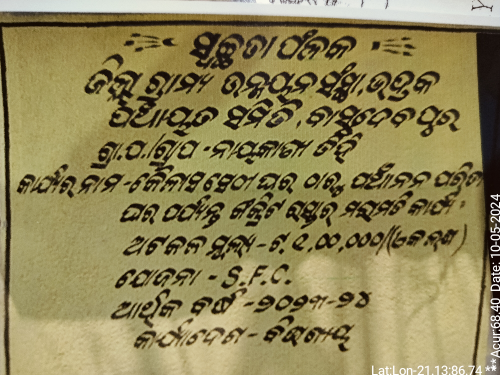 ସ୍ୱଚ୍ଛତା ଫଳକ
ଜିଲ୍ଲା ଗ୍ରାମ୍ୟ ଉନ୍ନୟନ ସଂସ୍ଥା, ଭଦ୍ରକ
ପଞ୍ଚାୟତ ସମିତି, ବାସୁଦେବପୁର
ଗ୍ରା.ପ./ଗ୍ରାମ - ନାୟକାଣୀ ଡିହି
କାର୍ଯ୍ୟର ନାମ - କୈଳାସ ସେଠୀ ଘର ଠାରୁ ପଞ୍ଚାନନ
ଘର ପର୍ଯ୍ୟନ୍ତ କଂକ୍ରିଟ ରାସ୍ତାର ମରାମତି କାର୍ଯ୍ୟ
ଅଟକଳ ମୂଲ୍ୟ - ଟ.
ଯୋଜନା - S.F.C.
ଆର୍ଥିକ ବର୍ଷ - ୨୦୨୩-୨୪
କାର୍ଯ୍ୟାଦେଶ - ବିଭାଗୀୟ
Lat:Lon-21.13:86.74
**Acur:68.40 Date: 10-05-2024